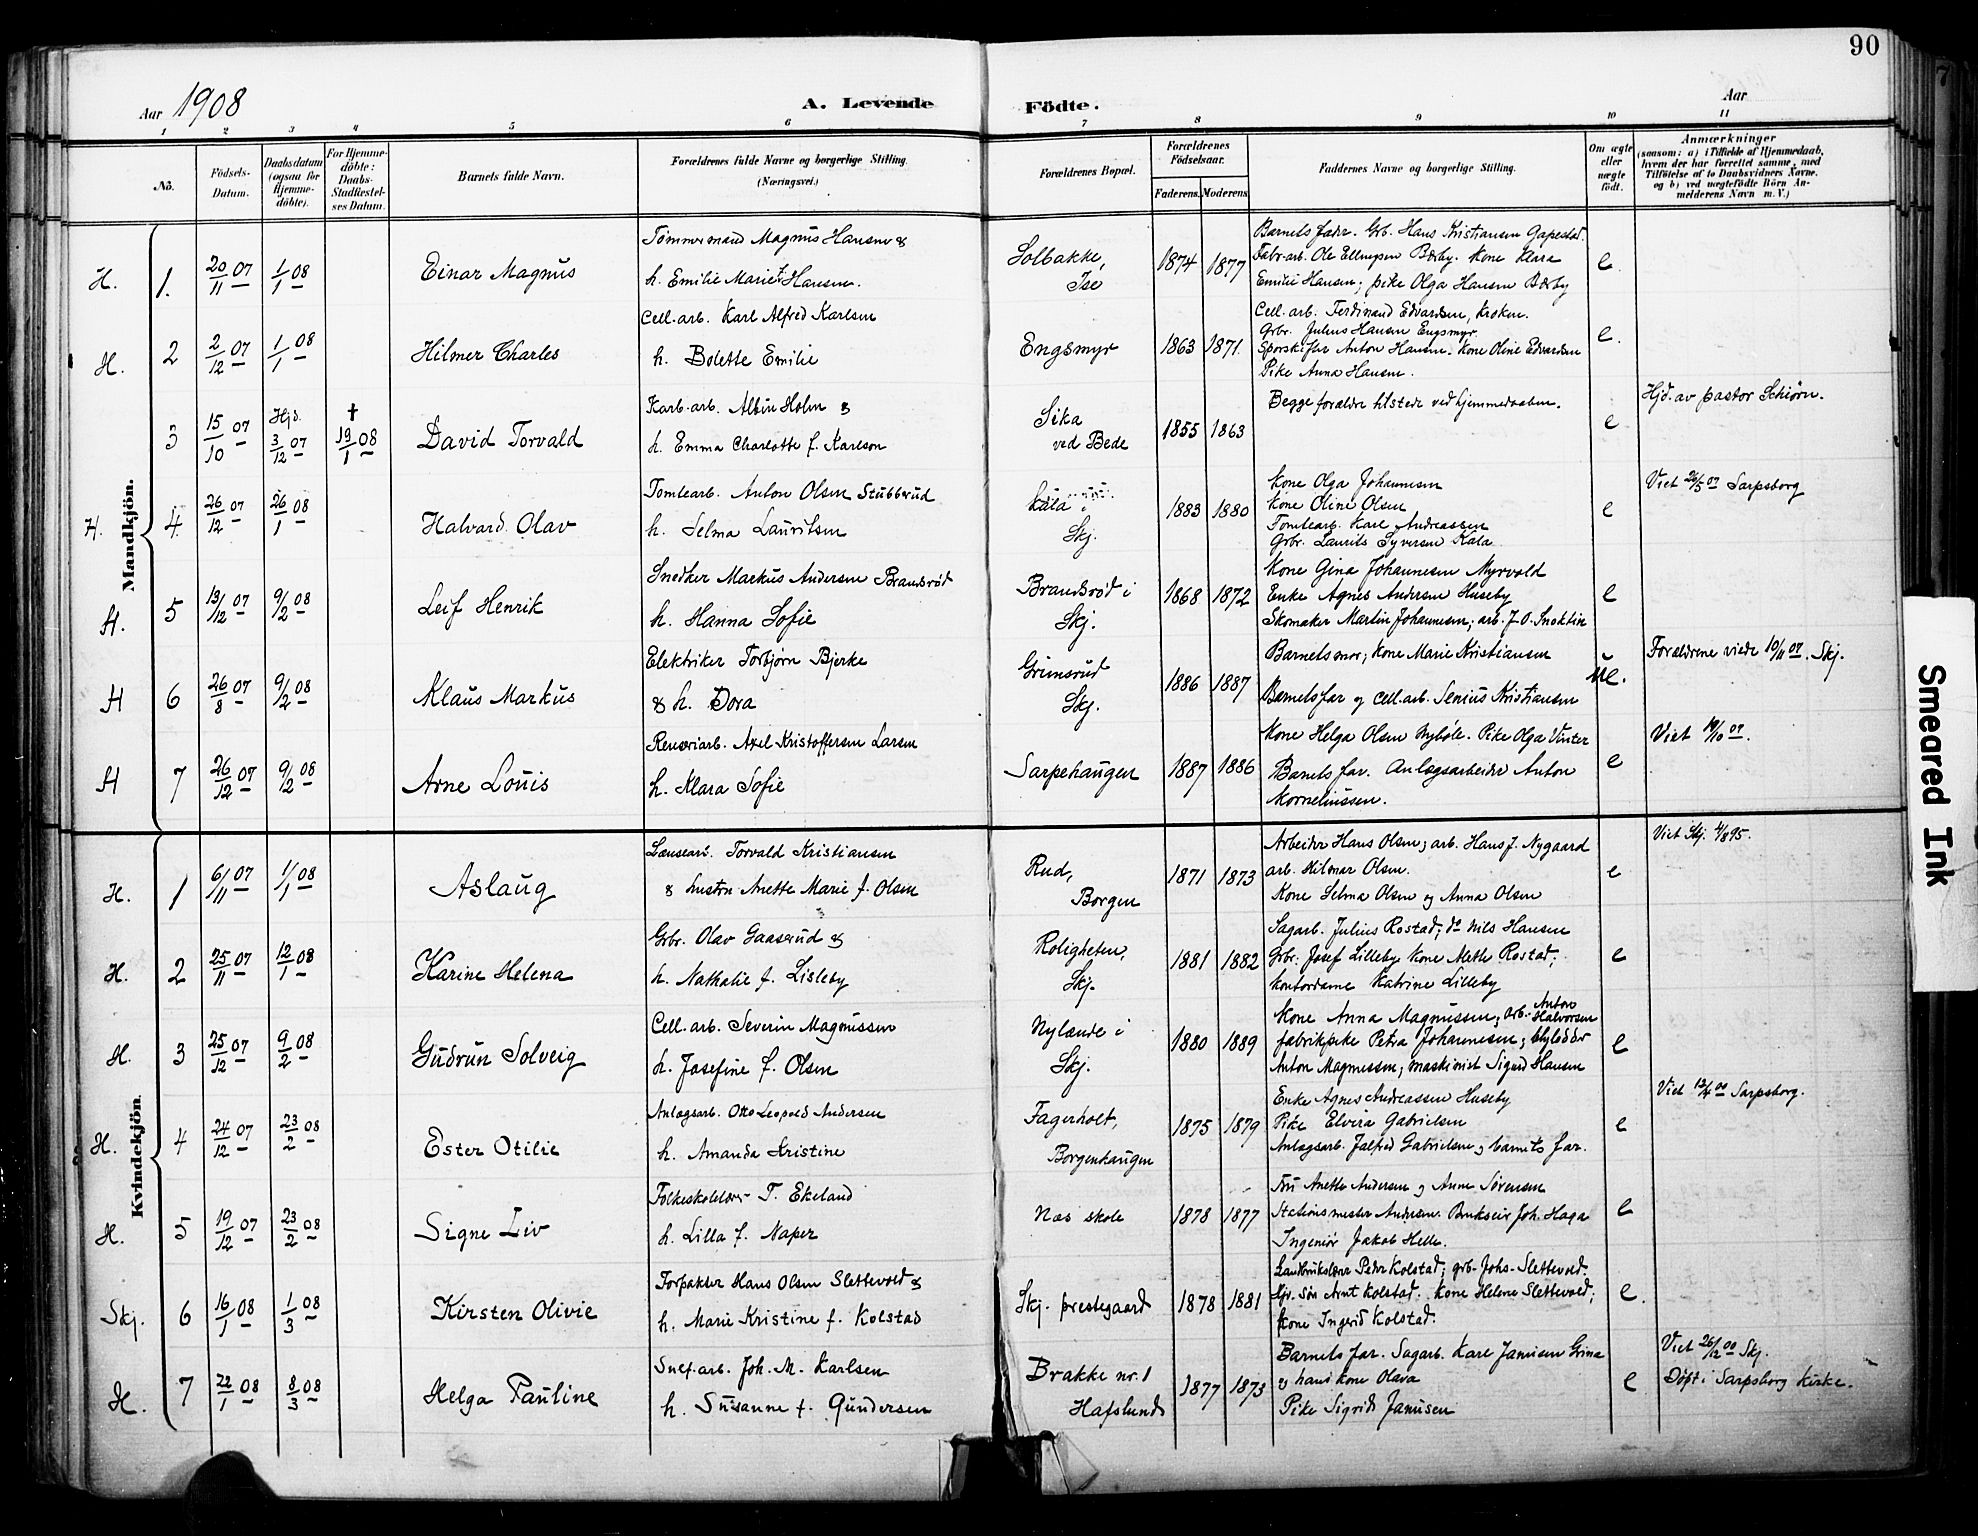 90
Aar 1908
A. Levende Födte.
Aar
1 2 3 4 5 6 7 8 9 10 11
No.
Födsels-Datum.
Daabsdatum (ogsaa for Hjemme-döbte).
For Hjemme-döbte: Daabs-Stadfæstel-ses Datum.
Barnets fulde Navn.
Forældrenes fulde Navne og borgerlige Stilling. (Næringsvei.)
Forældrenes Bopæl.
Forældrenes Födselsaar.
Faderens. Moderens.
Faddernes Navne og borgerlige Stilling.
Om ægte eller uægte födt.
Anmærkninger
(saasom: a) i Tilfælde af Hjemmedaab,
hvem der har forrettet samme, med
Tilföielse af to Daabsvidners Navne,
og b) ved uægtefödte Börn An-
melderens Navn m. V.)
Mandkjön.
H. 1. 20/11 07 1/1 08 Einar Magnus
Tømmermand Magnus Hansen &
h. Emilie Marie f. Hansen.
Solbakke, Ise
1874 1877
Barnets fader. Grb. Hans Kristiansen Gapestad.
Fabr.arb. Ole Ellingsen Bærby. Kone Klara
Emilie Hansen; pike Olga Hansen Bærby
e
H. 2 2/12 07 1/1 08 Hilmer Charles
Cell.arb. Karl Alfred Karlsen
h. Bolette Emilie
Engsmyr
1863 1871
Cell.arb. Ferdinand Edvardsen, Kroken.
Grbr. Julius Hansen Engsmyr.
Anton Hansen. Kone Oline Edvardsen
Pike Anna Hansen.
e.
3 15/10 07 Hjd. 3/12 07 † 19/1 08 David Torvald
Karb.arb. Albin Holm &
h. Emma Charlotte f. Karlson
Sika ved Bede
1855 1863
Begge forældre tilstede ved hjemmedaaben.
e
Hjd. av pastor Schiørn.
H. 4. 26/12 07 26/1 08 Halvard Olav
Tomtearb. Anton Olsen Stubberud
h. Selma Lauritsen
Kala i Skj.
1883 1880
Kone Olga Johannesen
Kone Oline Olsen
Tomtearb. Karl Andreassen
Grbr. Laurits Syversen Kala
e
Viet 26/5 07 Sarpsborg
H. 5 13/12 07 9/2 08 Leif Henrik
Snedker Markus Andersen Brandsrød
h. Hanna Sofie
Brandsrød i Skj.
1868 1872
Kone Gina Johannesen Myrvold
Enke Agnes Andersen Huseby
Skomaker Martin Johannesen; arb. J. O.
e
H 6 26/8 07 9/2 08 Klaus Markus
Elektriker Torbjørn Bjerke
& h. Dora
Grimsrud Skj.
1886 1887
Barnets mor; Kone Marie Kristiansen
Barnets far og cell.arb. Senius Kristiansen
ue.
Forældrene viede 10/11 07. Skj.
H 7 26/12 07 9/2 08 Arne Louis
Renseriarb. Axel Kristoffersen Larsen
h. Klara Sofie
Sarpehaugen
1887 1886
Kone Helga Olsen Nyböle. Pike Olga Vinter
Barnets far. Anlægsarbeider Anton
Kornelinssen.
e
Viet 19/10 07.
Kvindekjön.
H. 1 6/11 07 1/1 08 Aslaug
Lensearb. Torvald Kristiansen
& hustru Anette Marie f. Olsen
Rud, Borgen
1871 1873
Arbeider Hans Olsen; arb. Hans J. Nygaard
arb. Hilmar Olsen.
Kone Selma Olsen og Anna Olsen
e
Viet Skj. 4/8 95.
H. 2 25/11 07 12/1 08 Karine Helena
Grbr. Olav Gaaserud &
h. Nathalie f. Lisleby
Roligheten, Skj.
1881 1882
Sagarb. Julius Rostad; do Nils Hansen
Grbr. Josef Lilleby Kone Mette Rostad;
kontordame Katrine Lilleby
e
H. 3 25/12 07 9/2 08 Gudrun Solveig
Cell.arb. Severin Magnussen
h. Josefine f. Olsen
Nylænde i Skj.
1880 1889
Kone Anna Magnussen; arb. Anton Halvorsen
fabrikpike Petra Johannesen; blylodder
Anton Magnussen; maskinist Sigurd Hansen
e
H. 4 24/12 07 23/2 08 Ester Otilie
Anlægsarb. Otto Leopold Andersen
h. Amanda Kristine
Fagerholt, Borgenhaugen
1875 1879
Enke Agnes Andreassen Huseby
Pike Elvira Gabrielsen
Anlægsarb. Jalfred Gabrielsen og barnets far.
e
Viet 12/4 00 Sarpsborg.
H. 5 19/12 07 23/2 08 Signe Liv
Folkeskolelærer T. Ekeland
h. Lilla f. Naper
Næs skole
1878 1877
Fru Anette Andersen og Anne Sørensen
Stationsmester Andersen. Brukseier Joh. Haga
Ingeniør Jakob Helle.
e
Skj. 6 16/1 08 1/3 08 Kirsten Olivie
Forpakter Hans Olsen Slettevold &
h. Marie Kristine f. Kolstad
Skj. prestegaard
1878 1881
Landbrukslærer Peder Kolstad; grb. Johs. Slettevold.
Arnt Kolstad. Kone Helene Slettevold;
Kone Ingerid Kolstad.
e.
H. 7 22/1 08 8/3 08 Helga Pauline
Joh. M. Karlsen
h. Susanne f. Gundersen
Brakke nr. 1 Hafslund
1877 1873
Barnets far. Sagarb. Karl Jansen Grina
og hans kone Olava
Pike Sigrid Jansen
e
Viet 26/12 00 Skj.
Døpt i Sarpsborg kirke.
Smeared Ink